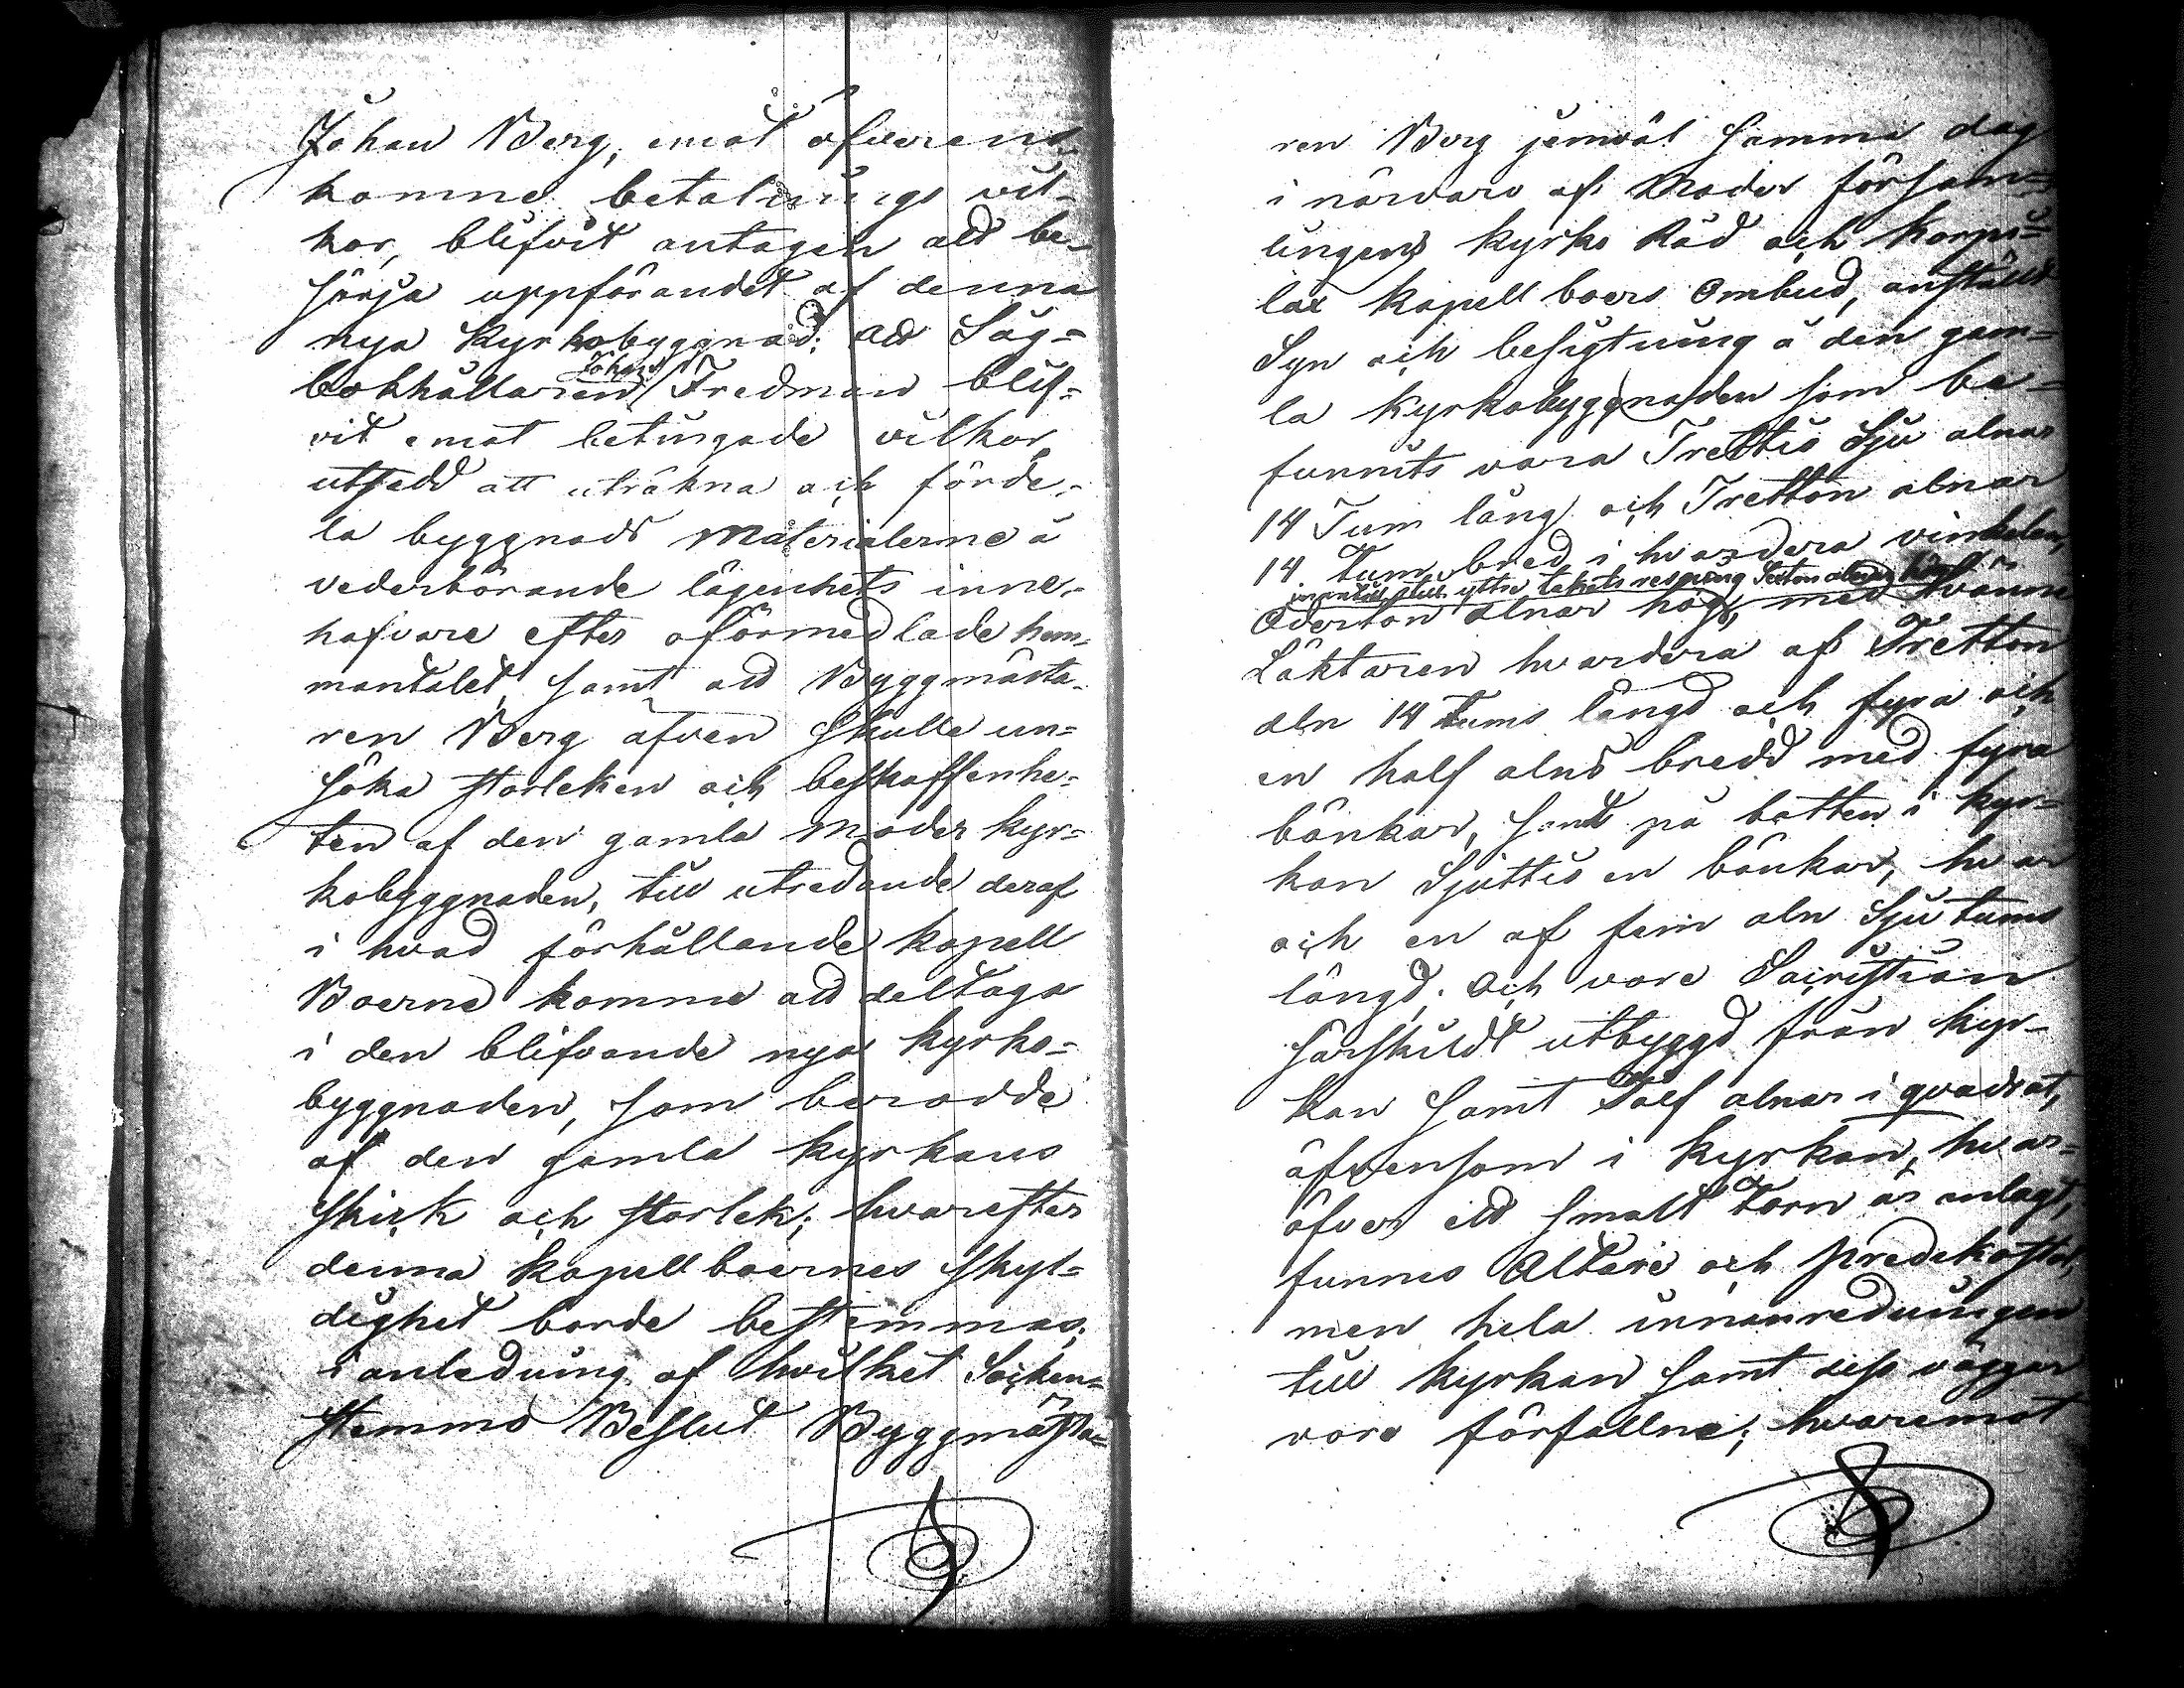 Johan Berg, emot öfverens
komne betalnings vil-
kor, blifvit antagen att be-
sörja uppförandet af denna
nya kyrkobyggnad; att Såg=
Johan
bokhållaren Fredman blif=
vit emot betingade vilkor
utsedd att uträkna och förde-
la byggnads Materialerne å
vederbörande lägenhets inne-
hafvare efter oförmedlade hem-
mantalet, samt att Byggmästa-
ren Berg äfven skulle un=
söka storleken och beskaffenhe=
ten af den gamla Moder kyr=
kobyggnaden, till utredande deraf
i hvad förhållande kapell
Boerne komme att deltaga
i den blifvande nya kyrko=
byggnaden, som berodde
af den gamla kyrkans
skick och storlek; hvarefter
denna kapellboernes skyl=
dighet borde bestemmas;
i anledning af hvilket Socken=
stemmo Beslut Byggmästa=
ren Berg jemväl samma dag
i närvaro af Moder försam=
lingens kyrko Råd och Korpi=
lax kapell boers Ombud, anställt
Syn och besigtning å den gam=
la kyrkobyggnaden som be=
funnits vara Trettio Sju alnar
14 Tum lång och Tretton alnar
14. tum bred i hvardera vinkelen,
invändigt till yttre takets resning Sexton alnar
Aderton alnar hög, med tvänne
Läktaren hvardera af Tretton
aln 14 tums längd och fyra och
en half alns bredd med fyra
bänkar, samt på botten i kyr=
kan Sjuttio en bänkar, hvar
och en af fem aln Sju tums
längd; Och vore Sacristian
särskildt utbyggd från kyr-
kan samt Tolf alnar i qvadrat,
äfvensom i kyrkan, hvar=
öfver ett smalt Torn är anlagt,
funnes Altare och predikostol,
men hela innanredningen
till kyrkan samt dess väggar
voro förfallne; hvaremot